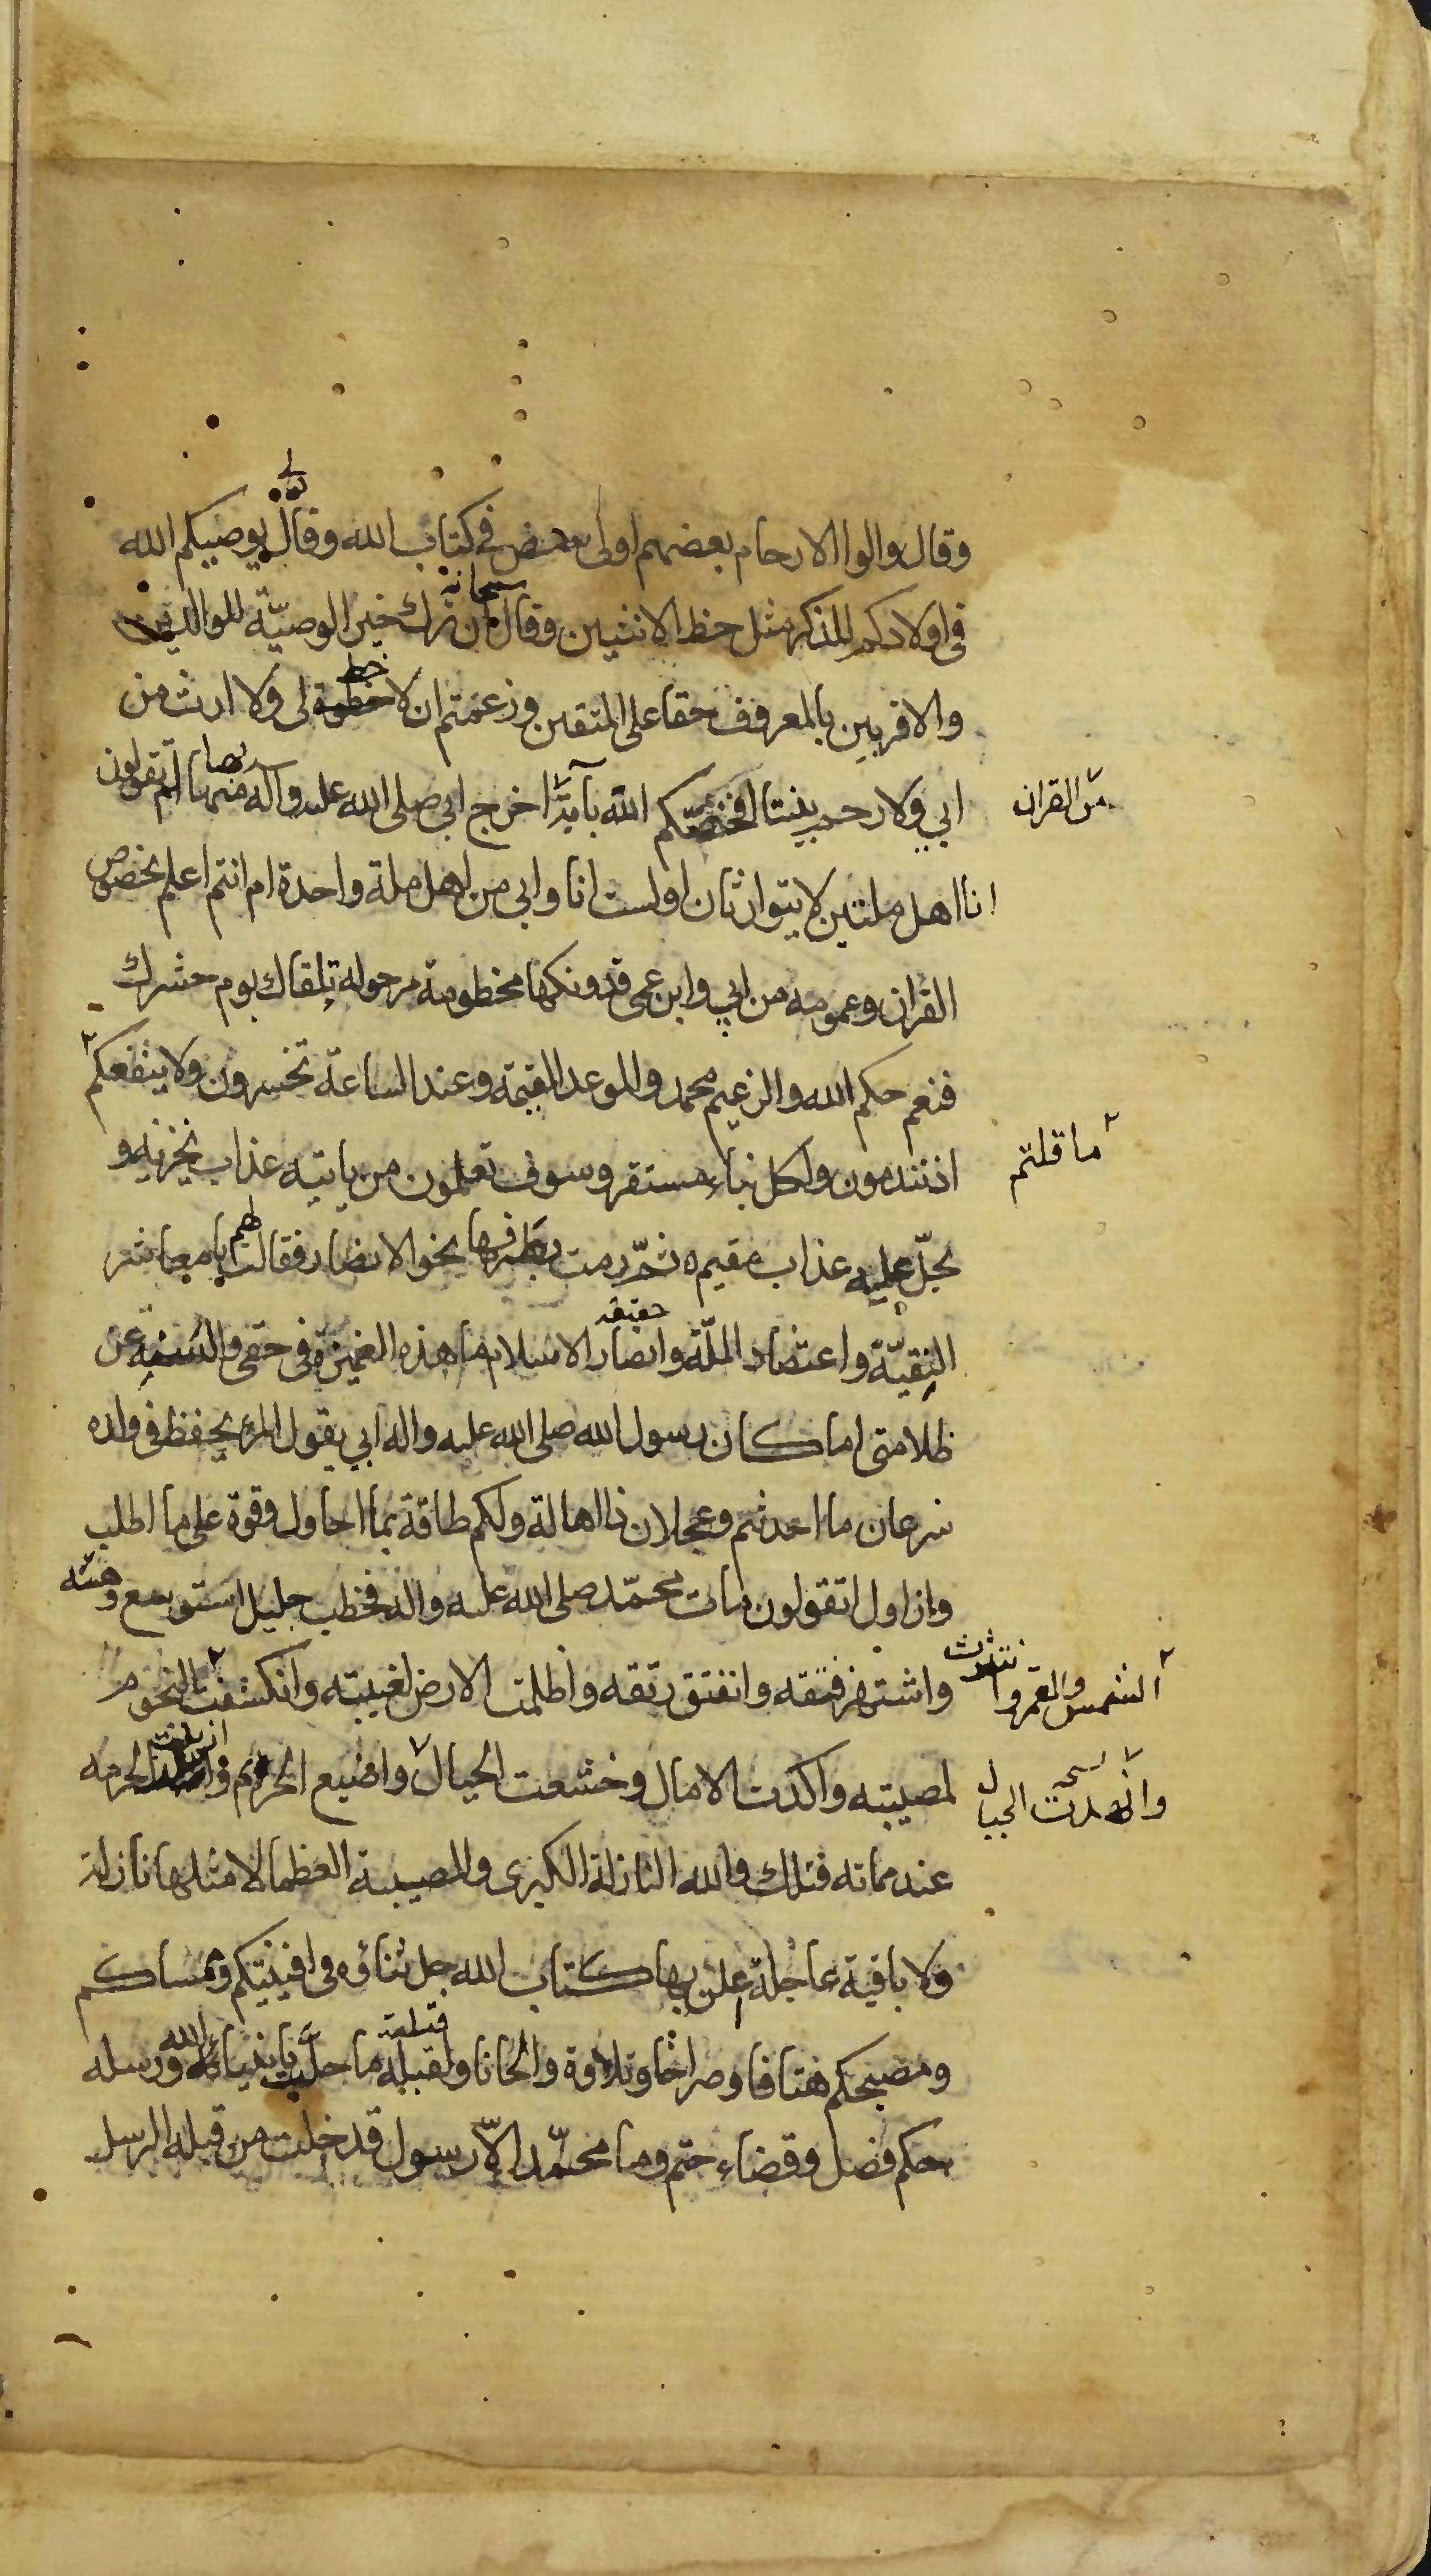 وقال والوا الارحام بعضهم اولى ببعض في كتاب الله وقال تعالى يوصيكم الله
في اولادكم للذكر مثل حظ الانثيين وقال سبحانه ان ترك خيرا الوصيّة للوالدين
والاقربين بالمعروف حقا على المتقين وزعمتم ان لا حظوة لى ولا ارث من
ابي ولا رحم بيننا افخصّكم الله بآية اخرج ابي صلى الله عليه وآله منها ام تقولون
من القران
انا اهل ملتين لا يتوارثان اولست انا وابي من اهل ملة واحدة ام انتم اعلم بخصوص
القران وعمومه من ابي وابن عمى فدونكها مخطومة مرحولة تلقاك يوم حشرك
فنعم حكم الله والزعيم محمد والموعد القيمة وعند الساعة تخسرون ولا ينفعكم
ما قلتم
اذ تندمون ولكل نباء مستقر وسوف تعلمون من ياتيه عذاب يخزيه و
يحلّ عليه عذاب مقيم ثمّ رمت بطرفها نحو الانصار فقالت لهم يا معاشر
النقيّة واعتضاد الملّة وانصار الاسلام ما هذه الغميزة في حقى والسنة عن
ظلامتى اما كان رسول الله صلى الله عليه واله ابي يقول المرء يحفظ في ولده
سرعان ما احدثتم وعجلان ذا اهالة ولكم طاقة بما احاول وقوة على ما اطلب
وازاول اتقولون مات محمّد صلى الله عليه واله فخطب جليل استوسع وهنه
واشتهر فتقه وانفتق رتقه واظلمت الارض لغيبته وانكسفت النجوم
الشمس والقمر وانتثرت
لمصيبته واكدت الامال وخشعت الجبال واضيع الحريم وازيلت الحرمه
وانهدت الجبال
عند مماته فتلك والله النازلة الكبرى والمصيبة العظما لا مثلها نازلة
ولا باقية عاجلة اعلن بها كتاب الله جل ثناؤه في افنيتكم وممساكم
ومصبحكم هتافا وصراخا وتلاوة والحانا ولقبله ما حلّت بانبياء الله ورسله
حكم فصل وقضاء حتم وما محمّد الّا رسول قد خلت من قبله الرسل